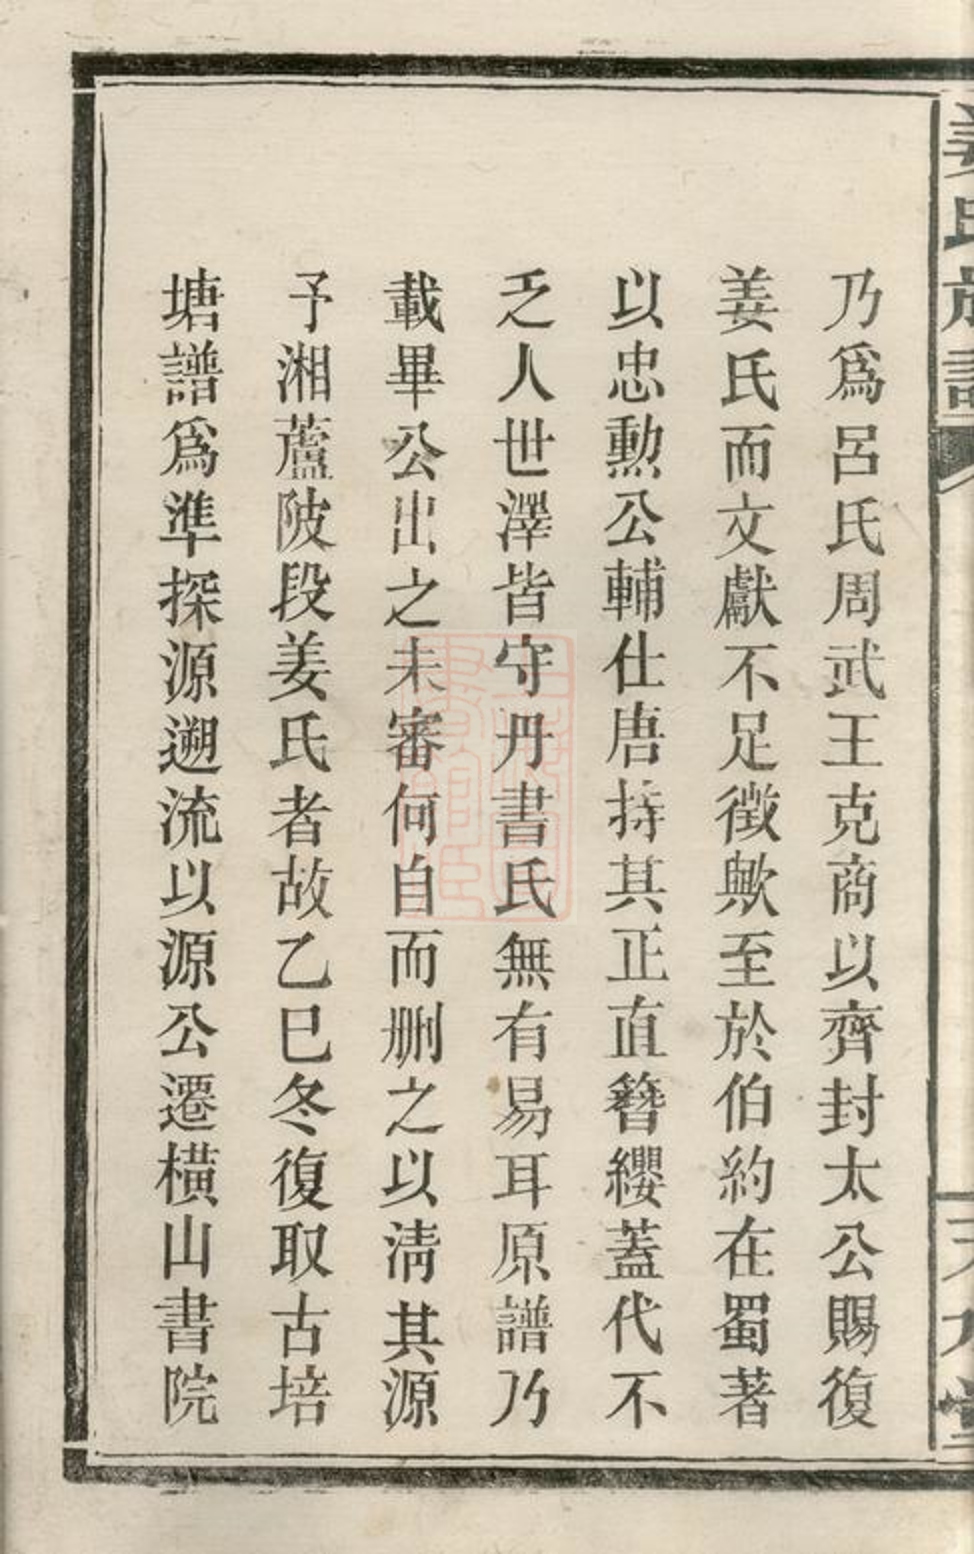 姜氏族譜
乃爲呂氏周武王克商以齊封太公賜復
姜氏而文獻不足徵歟至於伯約在蜀著
以忠勲公輔仕唐持其正直簪纓蓋代不
乏人世澤皆守丹書氏無有易耳原譜乃
載畢公出之未審何自而删之以淸其源
予湘蘆陂段姜氏者故乙巳冬復取古培
塘譜爲準探源遡流以源公遷橫山書院